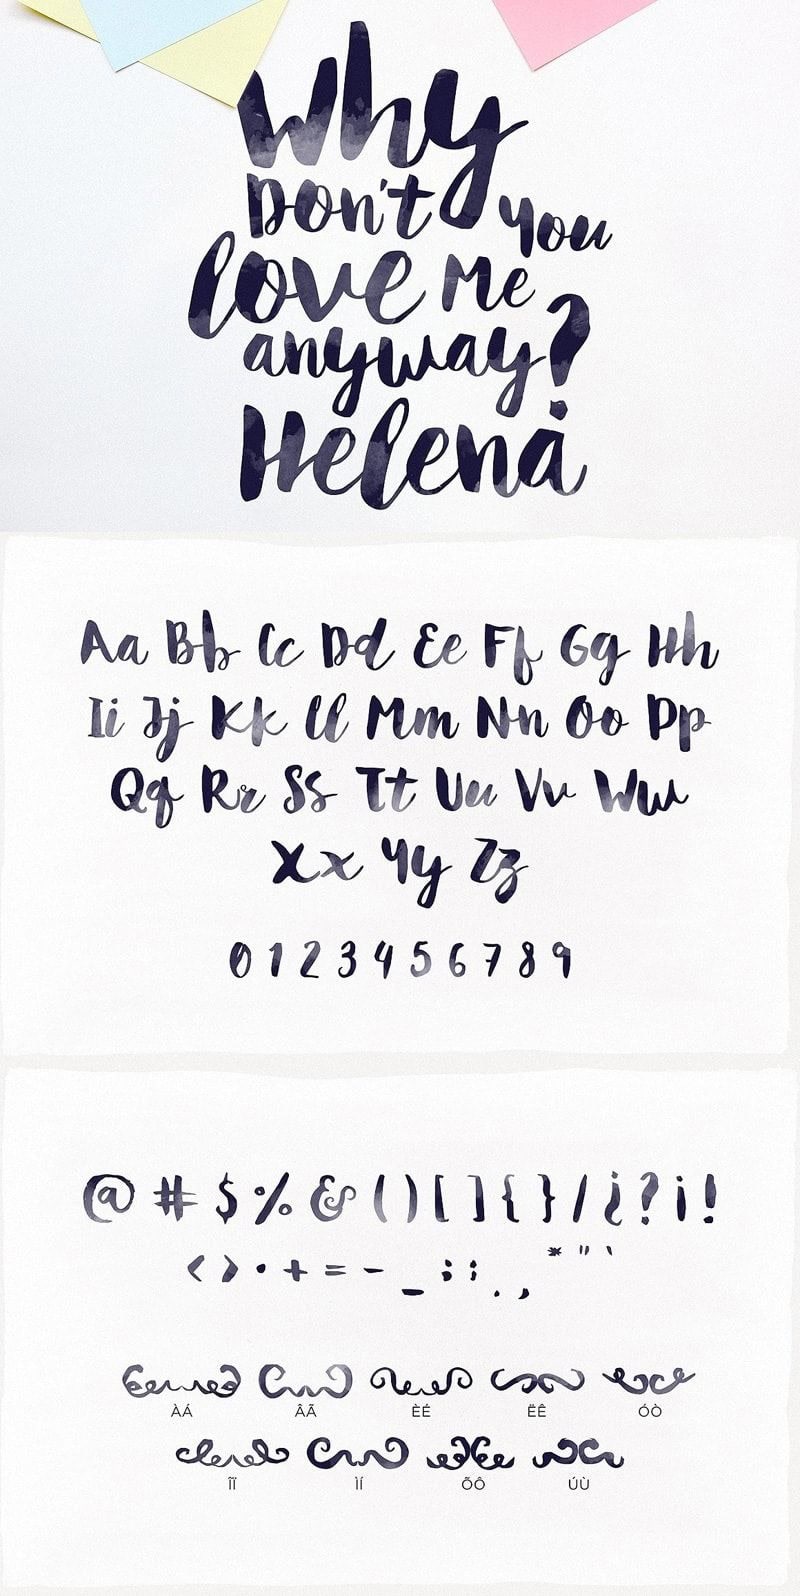 Why
Don't you
love Me
anyway?
Helena
Aa Bb Cc Dd Ee Ff Gg Hh
Ii Jj Kk Ll Mm Nn Oo Pp
Qq Rr Ss Tt Uu Vv Ww
Xx Yy Zz
0 1 2 3 4 5 6 7 8 9
@ # $ % & ( ) [ ] { } / ¿ ? ¡ !
< > · + = - _ : ; . , * " '
ÀÁ ÂÃ ÈÉ ËÊ ÓÒ
ÎÏ ÌÍ ÕÔ ÚÙ